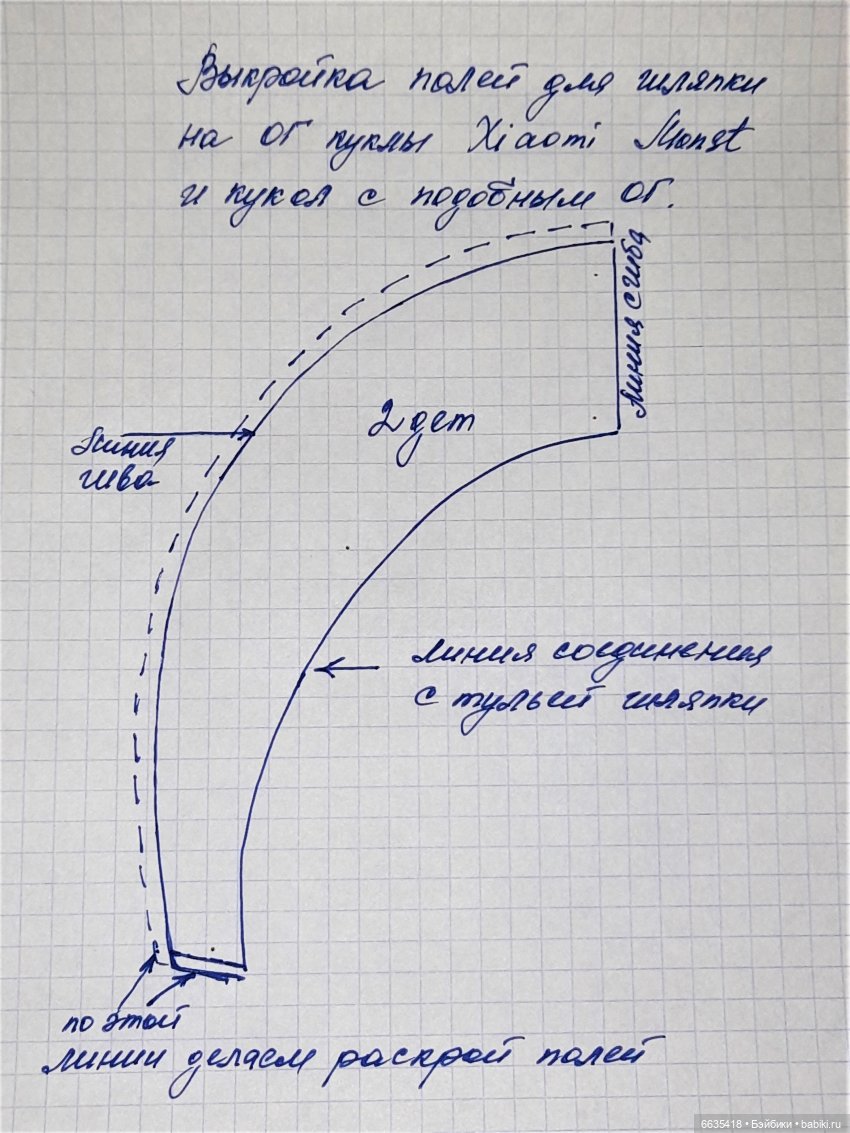 Выкройка полей для шляпки
на ОГ куклы Xiaomi Monst
и кукол с подобным ОГ.
линия сгиба
2 дет
линия
шва
линия соединения
с тульей шляпки
по этой
линии делаем раскрой полей
6635418 • Бэйбики • babiki.ru